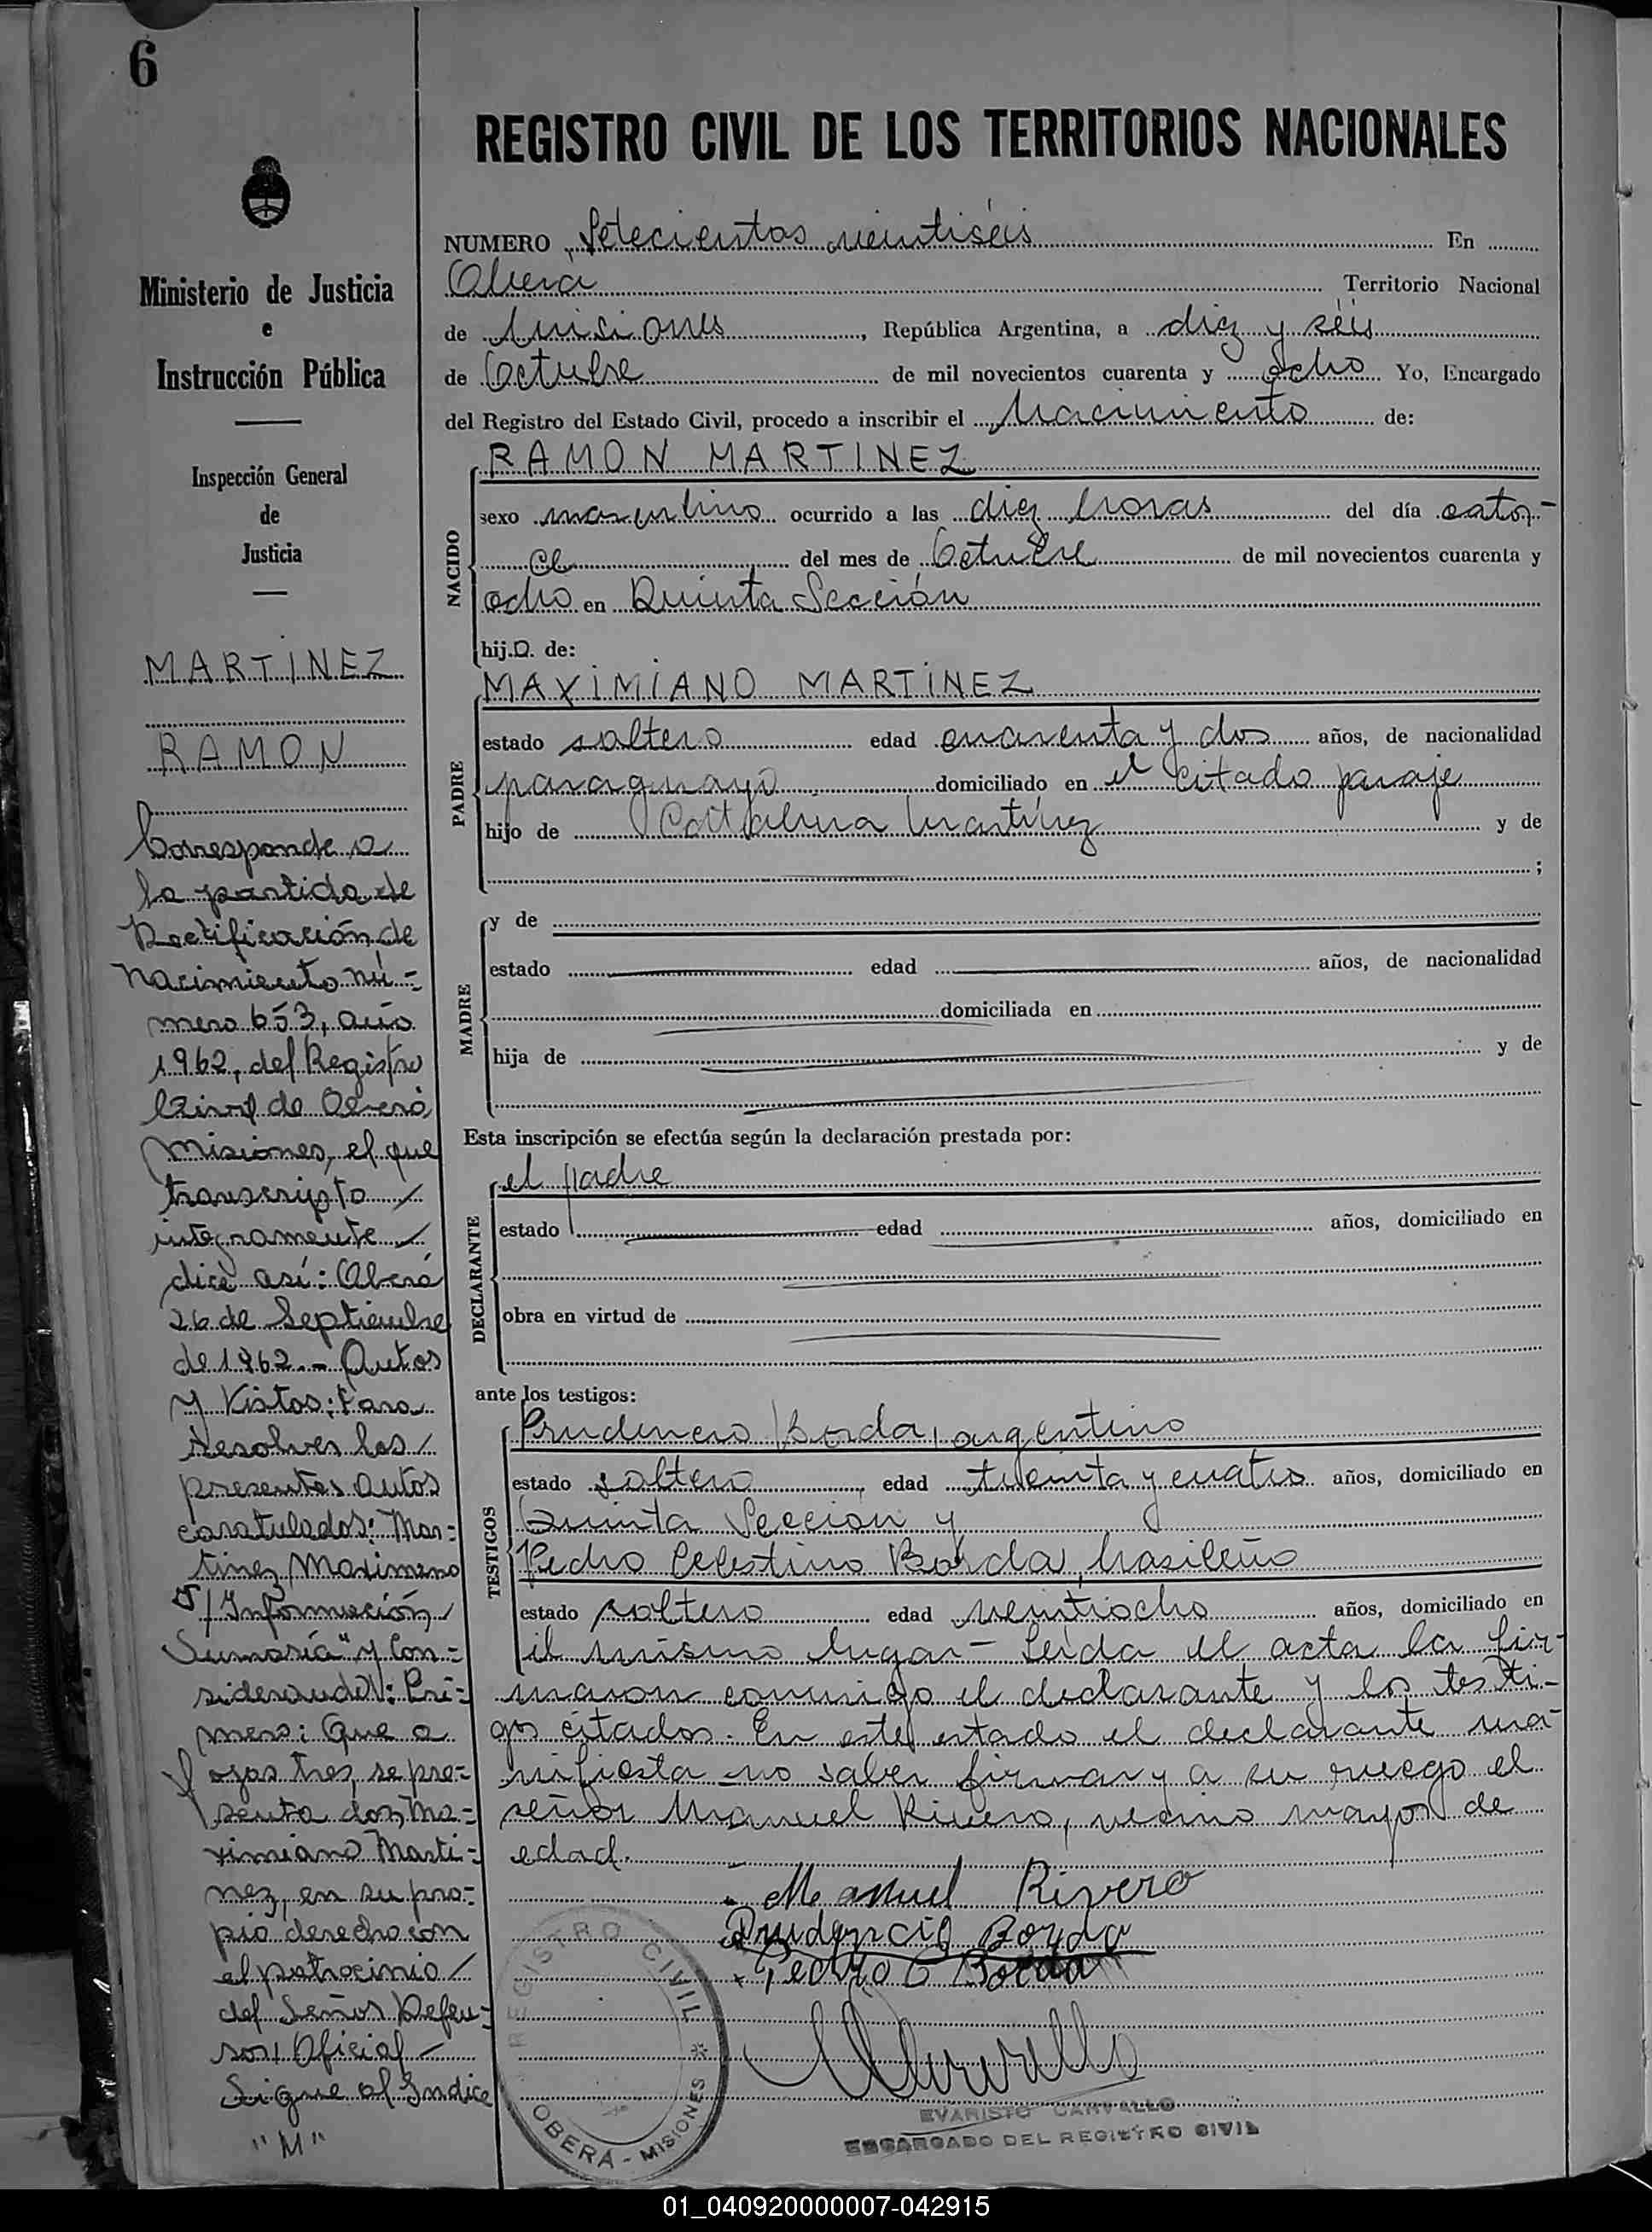 6
REGISTRO CIVIL DE LOS TERRITORIOS NACIONALES
Ministerio de Justicia
e
Instrucción Pública
Inspección General
de
Justicia
MARTINEZ
RAMON
Corresponde a
la partida de
Rectificación de
Nacimiento nú=
mero 653, año
1962, del Registro
Civil de Oberá,
Misiones, el que
transcripto
integramente
dice así: Oberá
26 de Septiembre
de 1962.- Autos
y Vistos: Para
resolver los
presentes autos
caratulados: Mar=
tinez Maximiano
S/Información
Sumaria" y Con=
siderando: Pri=
mero: Que a
fojas tres, se pre=
senta don Ma=
ximiano Marti=
nez, en su pro=
pio derecho con
el patrocinio
del Señor Defen=
sor Oficial
Sigue al Indice
"M"
NUMERO Setecientos veintiséis En
Obera Territorio Nacional
de Misiones, República Argentina, a diez y séis
de Octubre de mil novecientos cuarenta y ocho Yo, Encargado
del Registro del Estado Civil, procedo a inscribir el Nacimiento de:
NACIDO
RAMON MARTINEZ
sexo masculino ocurrido a las diez horas del día cator-
ce del mes de Octubre de mil novecientos cuarenta y
ocho en Quinta Sección
hij.o. de:
PADRE
MAXIMIANO MARTINEZ
estado soltero edad cuarenta y dos años, de nacionalidad
paraguayo domiciliado en el citado paraje
hijo de Catalina Martínez y de
;
MADRE
y de
estado edad años, de nacionalidad
domiciliada en
hija de y de
Esta inscripción se efectúa según la declaración prestada por:
DECLARANTE
el padre
estado edad años, domiciliado en
obra en virtud de
ante los testigos:
TESTIGOS
Prudencio Borda, argentino
estado soltero, edad treinta y cuatro años, domiciliado en
Quinta Sección y
Pedro Celestino Borda, brasileño
estado soltero edad veintiocho años, domiciliado en
el mismo lugar- Leída el acta la fir-
maron conmigo el declarante y los testi-
gos citados. En este estado el declarante ma-
nifiesta no saber firmar y a su ruego el
señor Manuel Rivero, vecino mayor de
edad.
Manuel Rivero
Prudencio Borda
Pedro C Borda
REGISTRO CIVIL
OBERA - MISIONES
EVARISTO CARVALLO
ENCARGADO DEL REGISTRO CIVIL
01_040920000007-042915